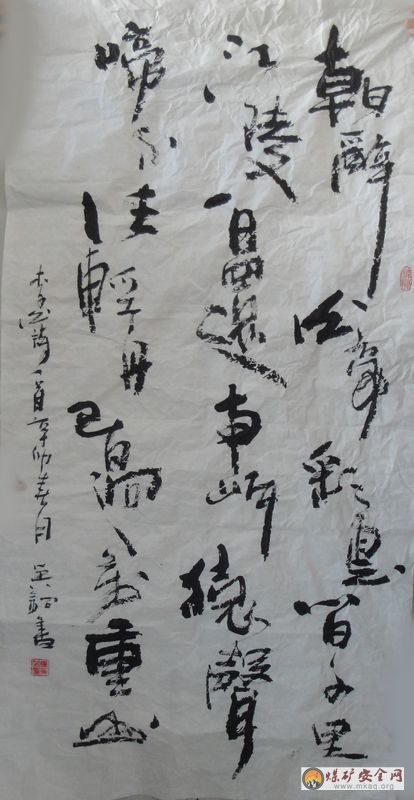 朝辭白帝彩雲间千里
江陵一日還兩岸猿聲
啼不住輕舟已過萬重山
李白詩一首辛卯春月
書
煤矿安全网
www.mkaq.org